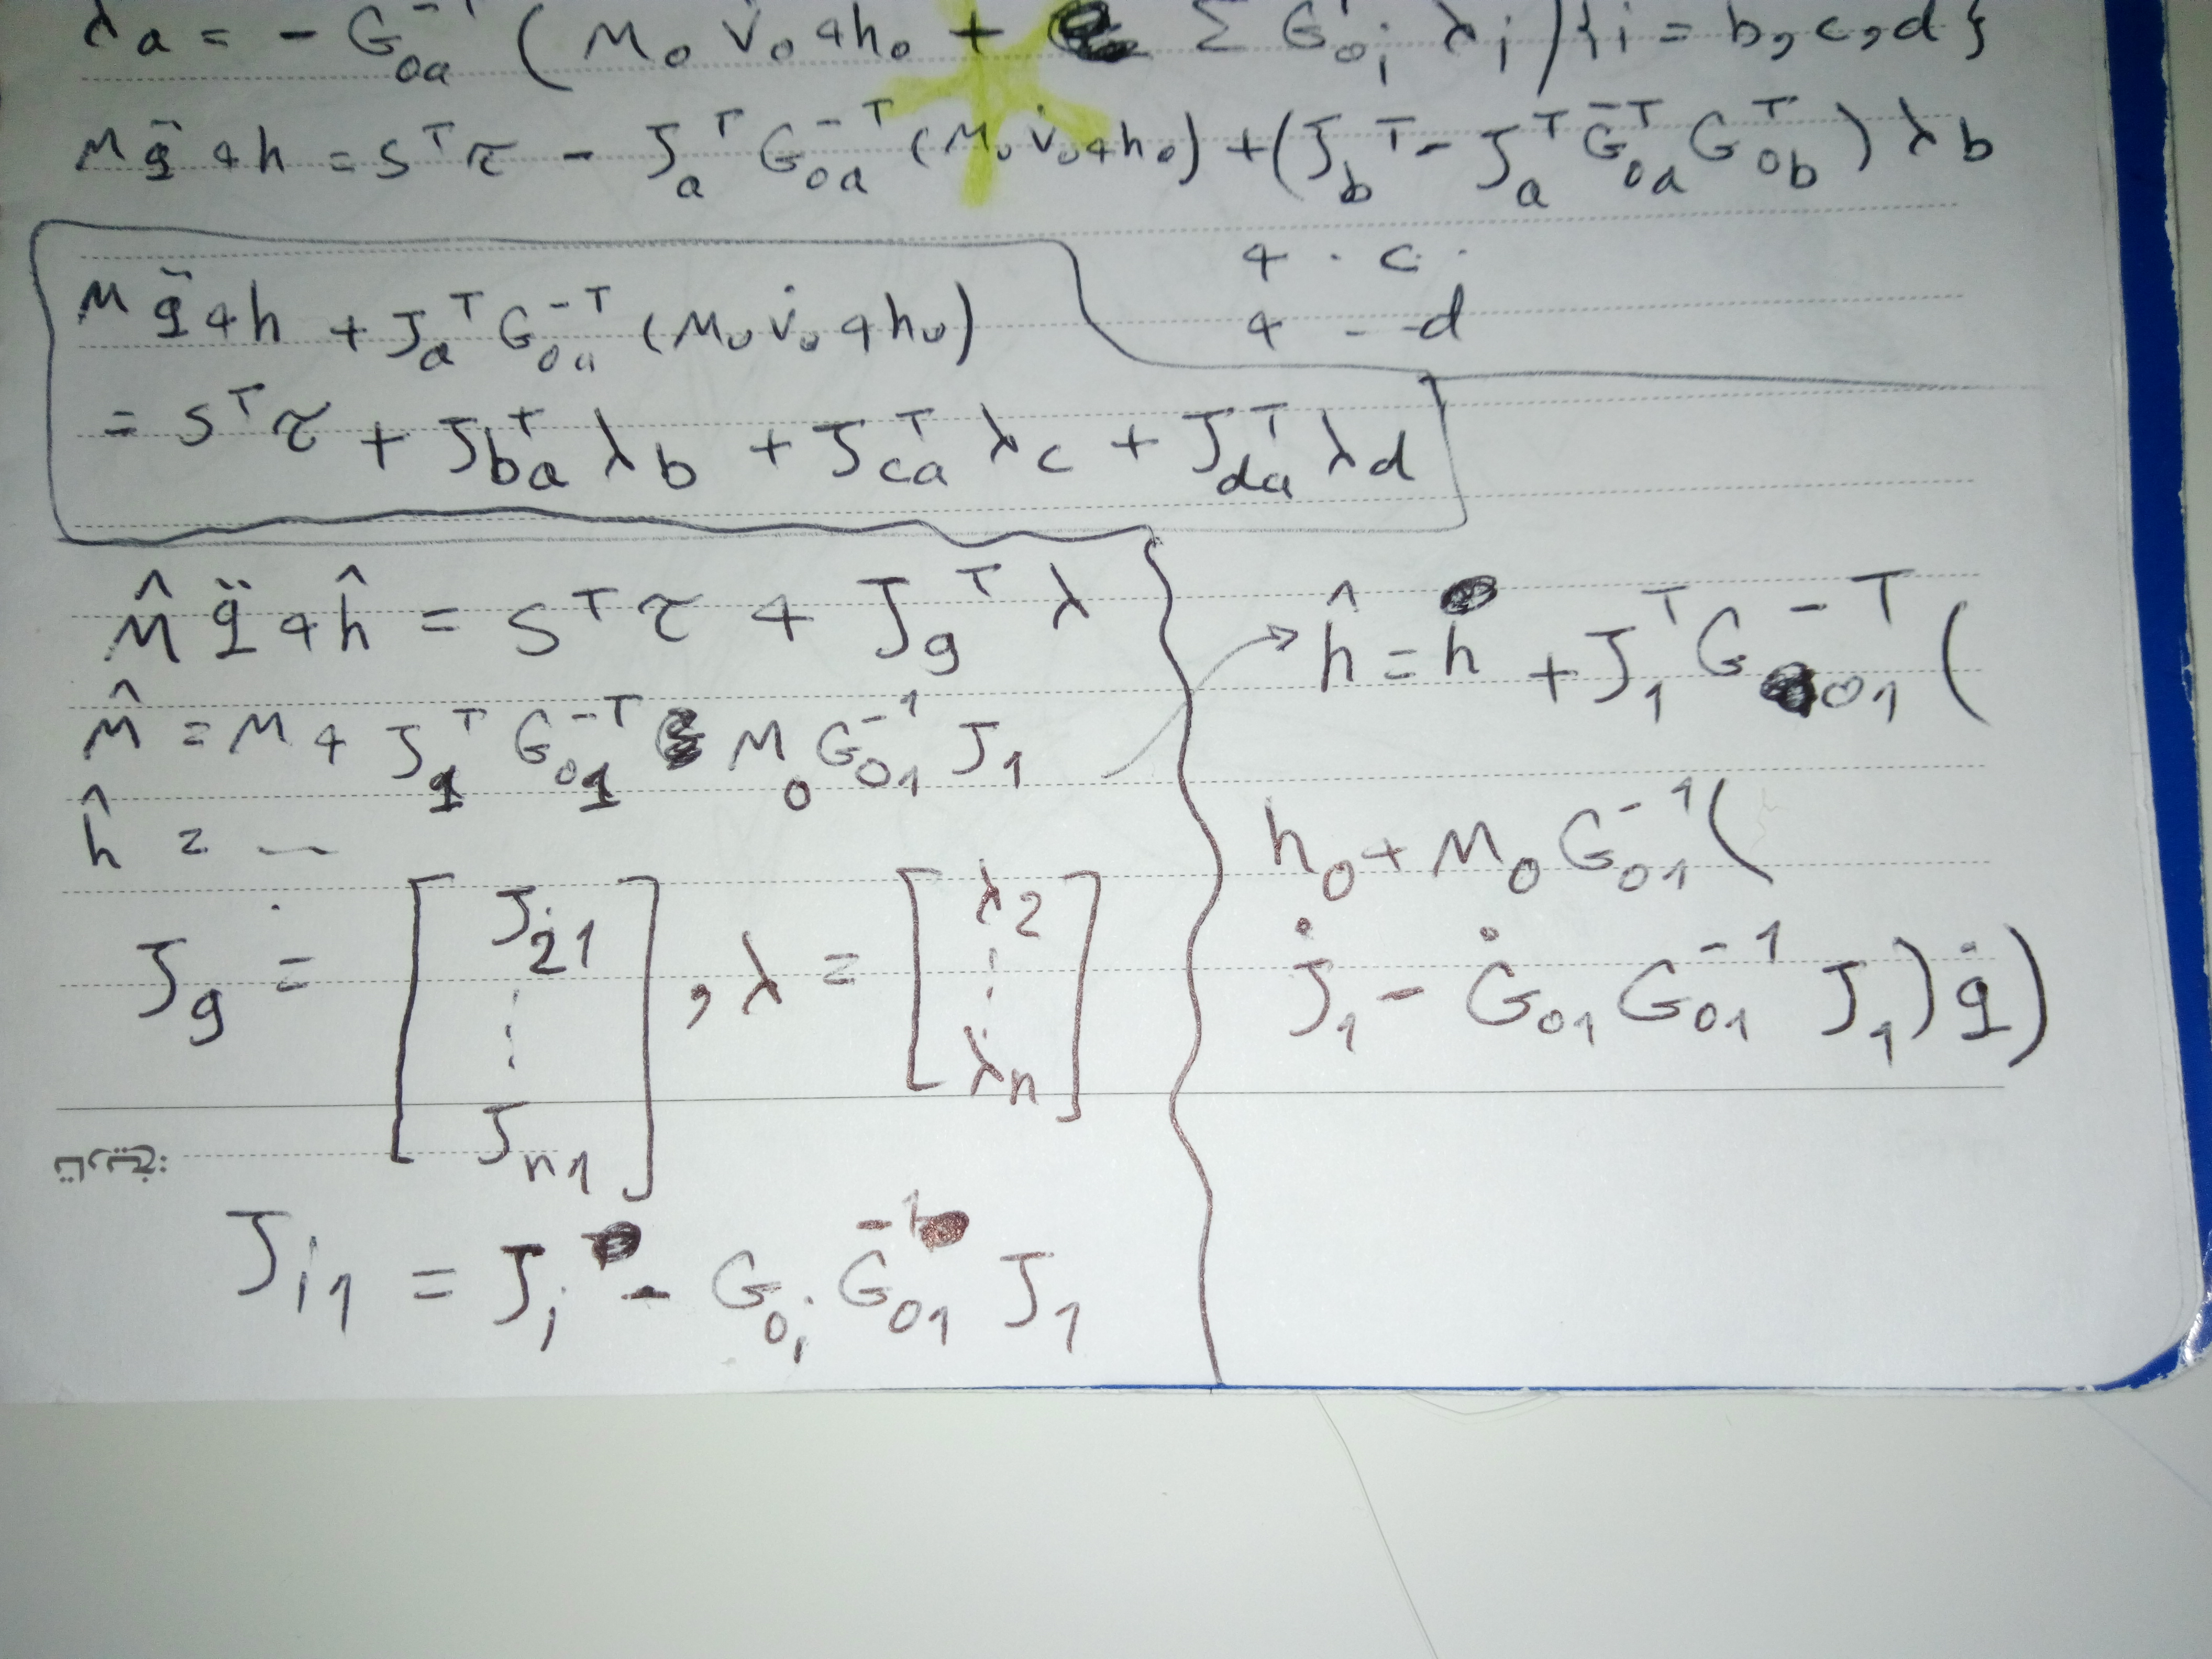 λa = - G₀ₐ⁻ᵀ ( M₀ v̇₀ + h₀ + Σ G₀ᵢᵀ λᵢ / {i = b, c, d}
M q̈ + h = Sᵀ τ - Jₐᵀ G₀ₐ⁻ᵀ (M₀ v̇₀ + h₀) + (J_bᵀ - Jₐᵀ G₀ₐ⁻ᵀ G₀_bᵀ) λb
+ . c .
+ - - d
M q̈ + h + Jₐᵀ G₀ₐ⁻ᵀ (M₀ v̇₀ + h₀)
= Sᵀ τ + J_baᵀ λb + J_caᵀ λc + J_daᵀ λd
M̂ q̈ + ĥ = Sᵀ τ + J_gᵀ λ
M̂ = M + J₁ᵀ G₀₁⁻ᵀ M₀ G₀₁⁻¹ J₁
ĥ = ...
J_g = [ J₂₁ ⋮ Jₙ₁ ] , λ = [ λ₂ ⋮ λₙ ]
Jᵢ₁ = Jᵢ - G₀ᵢ G₀₁⁻¹ J₁
→ ĥ = h + J₁ᵀ G₀₁⁻ᵀ (
h₀ + M₀ G₀₁⁻¹ (
J̇₁ - Ġ₀₁ G₀₁⁻¹ J₁) q̇)